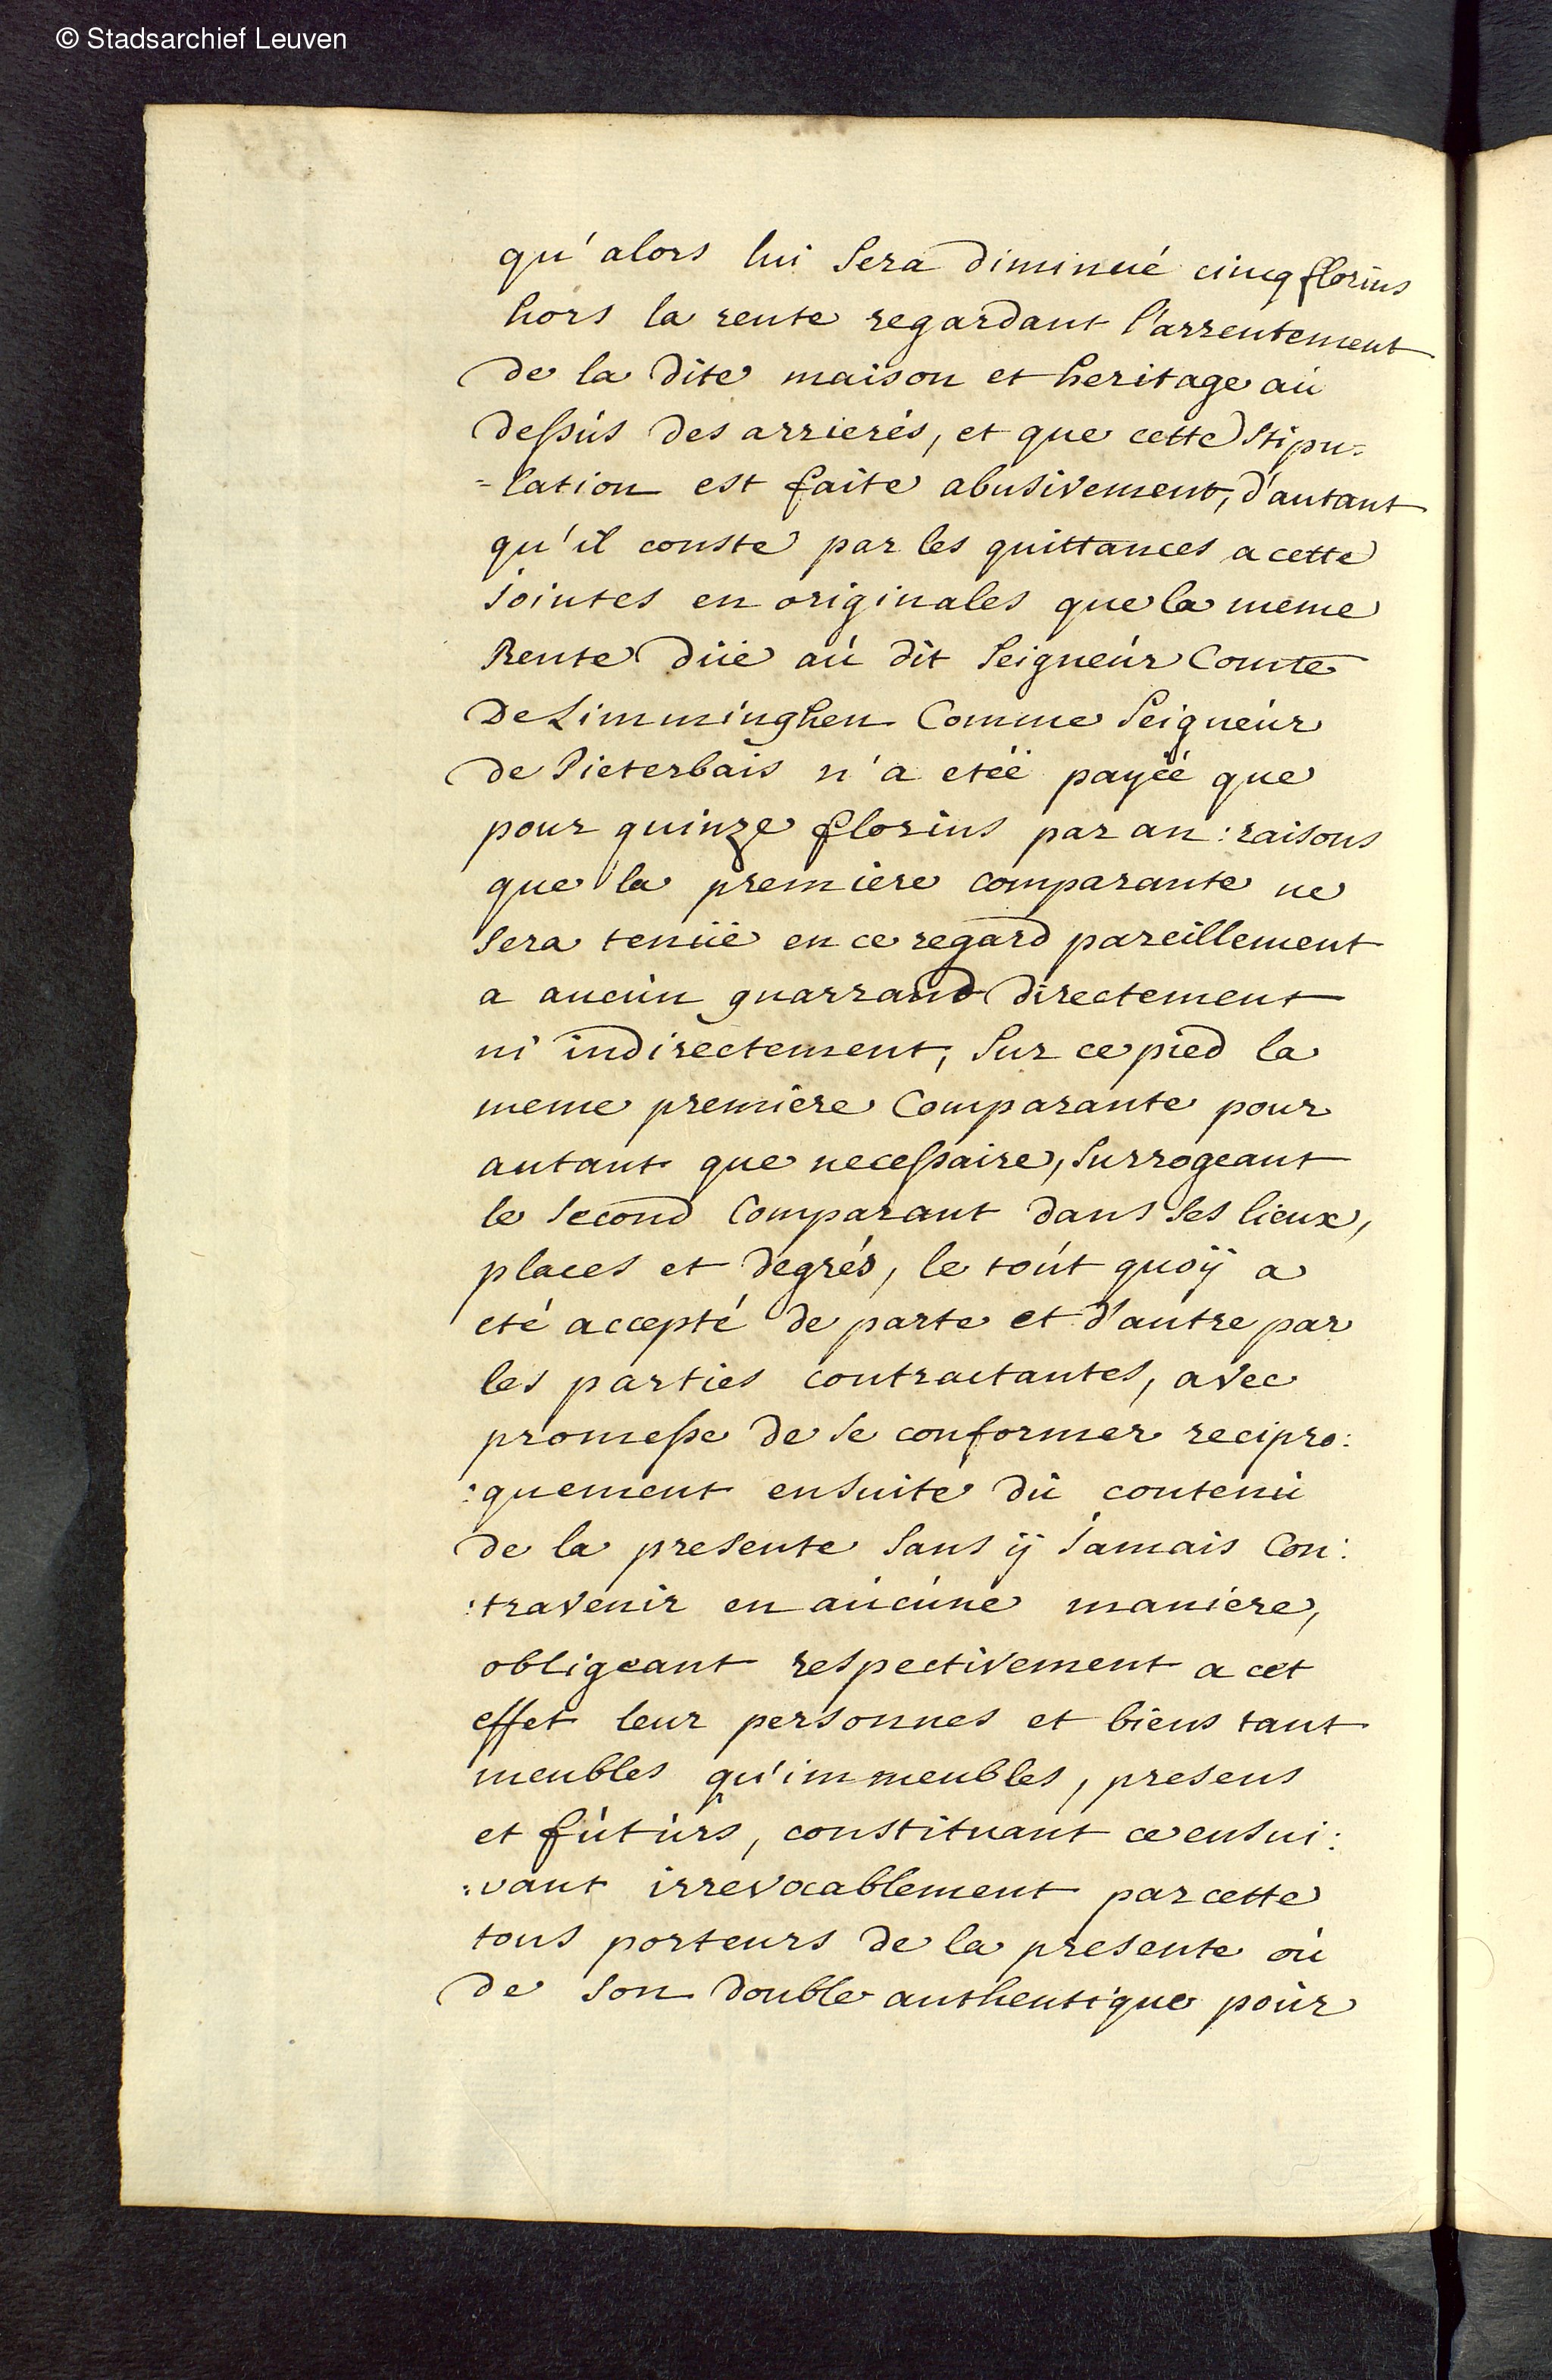 © Stadsarchief Leuven
qu'alors lui sera diminué cincq florins
hors la rente regardant l'arrentement
de la dite maison et heritage au
dessus des arrierés, et que cette stipu=
=lation est faite abusivement, d'autant
qu'il conste par les quittances a cette
jointes en originales que la meme
Rente düe au dit Seigneur Comte
De Limminghen Comme Seigneur
de Pieterbais n'a etéë payéé que
pour quinze florins par an : raisons
que la premiere comparante ne
sera tenüe en ce regard pareillement
a aucun guarrand directement
ni indirectement, Sur ce pied la
meme premiere Comparante pour
autant que necessaire, surrogeant
le second Comparant dans ses lieux,
places et degrés, le tout quoÿ a
eté accepté de parte et d'autre par
les parties contractantes, avec
promesse de se conformer recipro:
:quement ensuite du contenu
de la presente sans ÿ jamais Con:
:travenir en aucune maniere,
obligeant respectivement a cet
effet leur personnes et biens tant
meubles qu'immeubles, presens
et futurs, constituant ce ensui:
:vant irrevocablement par cette
tous porteurs de la presente ou
de son double authentique pour